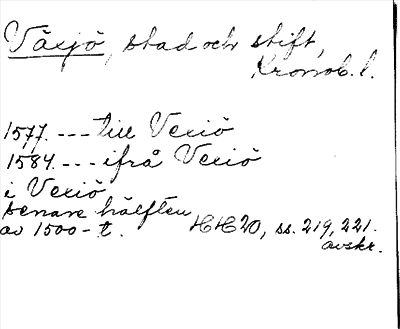 Växjö, stad och stift,
Kronob. l.
1577. --- till Vexiö
1584. --- ifrå Vexiö
i Vexiö
senare hälften
av 1500-t. HH20, ss. 219, 221.
avskr.